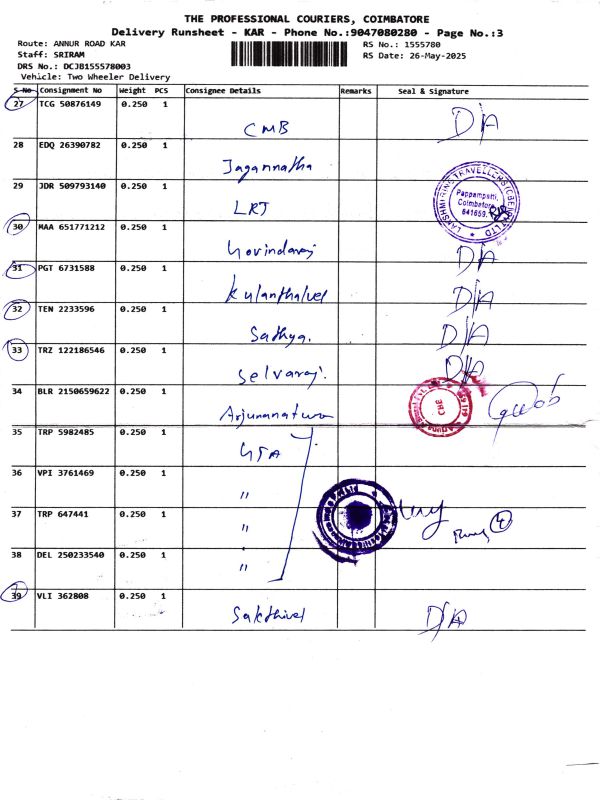 THE PROFESSIONAL COURIERS, COIMBATORE
Delivery Runsheet - KAR - Phone No.:9047080280 - Page No.:3
Route: ANNUR ROAD KAR
RS No.: 1555780
Staff: SRIRAM
RS Date: 26-May-2025
DRS No.: DCJB155578003
Vehicle: Two Wheeler Delivery
S No Consignment No Weight PCS Consignee Details Remarks Seal & Signature
27 TCG 50876149 0.250 1 CMB D/A
28 EDQ 26390782 0.250 1 Jagannatha
29 JDR 509793140 0.250 1 LRT
Pappampatti,
Coimbatore
641659.
30 MAA 651771212 0.250 1 Govindaraj D/A
31 PGT 6731588 0.250 1 Kulanthaivel D/A
32 TEN 2233596 0.250 1 Sathya. D/A
33 TRZ 122186546 0.250 1 Selvaraj. D/A
34 BLR 2150659622 0.250 1
CBE
35 TRP 5982485 0.250 1
36 VPI 3761469 0.250 1 "
37 TRP 647441 0.250 1 "
4
38 DEL 250233540 0.250 1 "
39 VLI 362808 0.250 1 Sakthivel D/A